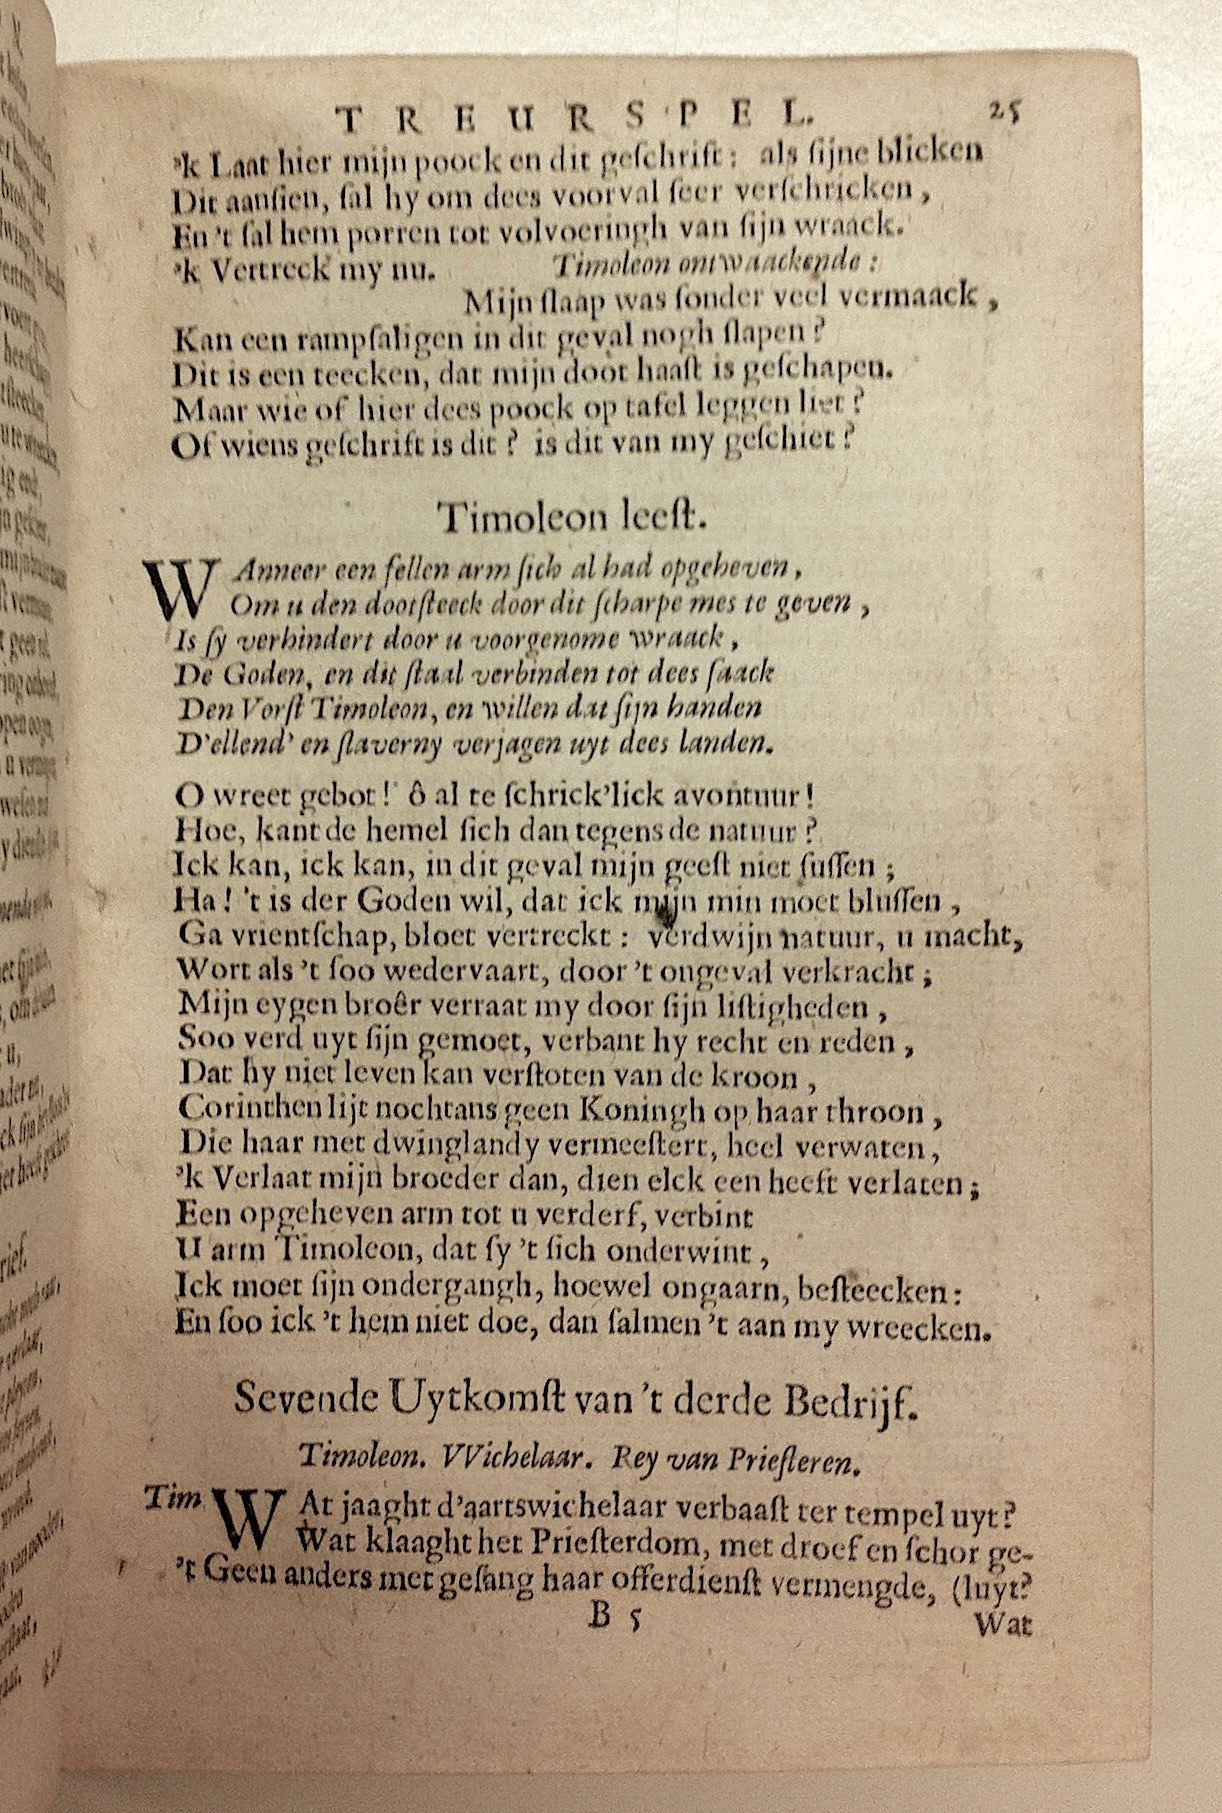 TREURSPEL. 25
'k Laat hier mijn poock en dit geſchrift: als ſijne blicken
Dit aanſien, ſal hy om dees voorval ſeer verſchricken,
En 't ſal hem porren tot volvoeringh van ſijn wraack.
'k Vertreck my nu. Timoleon ontwaackende:
Mijn ſlaap was ſonder veel vermaack,
Kan een rampſaligen in dit geval nogh ſlapen?
Dit is een teecken, dat mijn doot haaſt is geſchapen.
Maar wie of hier dees poock op tafel leggen liet?
Of wiens geſchrift is dit? is dit van my geſchiet?
Timoleon leeſt.
WAnneer een fellen arm ſich al had opgeheven,
Om u den dootſteeck door dit ſcharpe mes te geven,
Is ſy verhindert door u voorgenome wraack,
De Goden, en dit ſtaal verbinden tot dees ſaack
Den Vorſt Timoleon, en willen dat ſijn handen
D'ellend' en ſlaverny verjagen uyt dees landen.
O wreet gebot! ô al te ſchrick'lick avontuur!
Hoe, kant de hemel ſich dan tegens de natuur?
Ick kan, ick kan, in dit geval mijn geeſt niet ſuſſen;
Ha! 't is der Goden wil, dat ick mijn min moet bluſſen,
Ga vrientſchap, bloet vertreckt: verdwijn natuur, u macht,
Wort als 't ſoo wedervaart, door 't ongeval verkracht;
Mijn eygen broêr verraat my door ſijn liſtigheden,
Soo verd uyt ſijn gemoet, verbant hy recht en reden,
Dat hy niet leven kan verſtoten van de kroon,
Corinthen lijt nochtans geen Koningh op haar throon,
Die haar met dwinglandy vermeeſtert, heel verwaten,
'k Verlaat mijn broeder dan, dien elck een heeft verlaten;
Een opgeheven arm tot u verderf, verbint
U arm Timoleon, dat ſy 't ſich onderwint,
Ick moet ſijn ondergangh, hoewel ongaarn, beſteecken:
En ſoo ick 't hem niet doe, dan ſalmen 't aan my wreecken.
Sevende Uytkomſt van 't derde Bedrijf.
Timoleon. VVichelaar. Rey van Prieſteren.
Tim WAt jaaght d'aartswichelaar verbaaſt ter tempel uyt?
Wat klaaght het Prieſterdom, met droef en ſchor ge-
't Geen anders met geſang haar offerdienſt vermengde, (luyt?
B 5
Wat